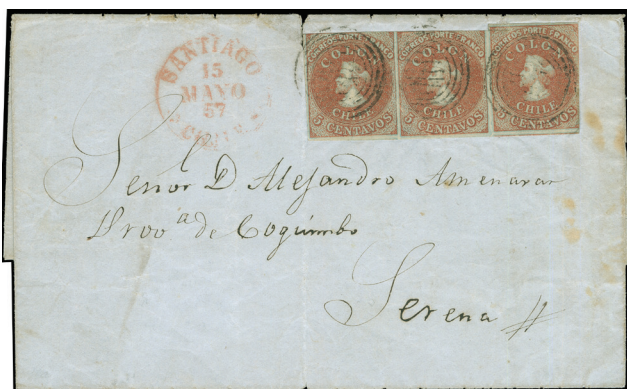 SANTIAGO
15
MAYO
57
CHILE
CORREOS PORTE FRANCO
COLON
CHILE
5 CENTAVOS
CORREOS PORTE FRANCO
COLON
CHILE
5 CENTAVOS
CORREOS PORTE FRANCO
COLON
CHILE
5 CENTAVOS
Señor D Alejandro Amenavar
Prov.a de Coquimbo
Serena